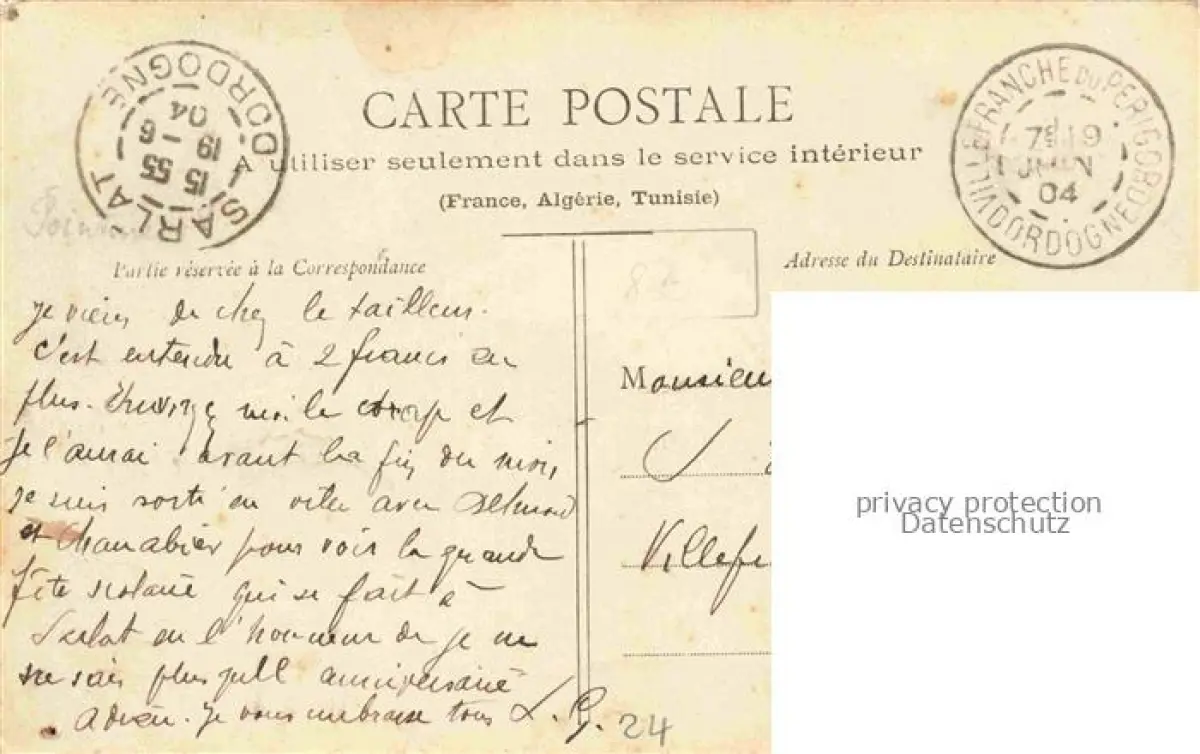 SARLAT
DORDOGNE
15 55
19 - 6
04
VILLEFRANCHE DU PERIGORD
7E 19
JUIN
04
DORDOGNE
CARTE POSTALE
A utiliser seulement dans le service intérieur
(France, Algérie, Tunisie)
Partie réservée à la Correspondance
Adresse du Destinataire
je viens de chez le tailleur.
c'est entendu à 2 francs en
plus. Envoyez moi le drap et
je l'aurai avant la fin du mois,
je suis sorti en ville avec Delmond
et Chanabier pour voir la grande
fête scolaire qui se fait à
Sarlat en l'honneur de je ne
sais plus quel anniversaire
adieu. Je vous embrasse tous L. G.
24
Monsieu
Villefr
privacy protection
Datenschutz